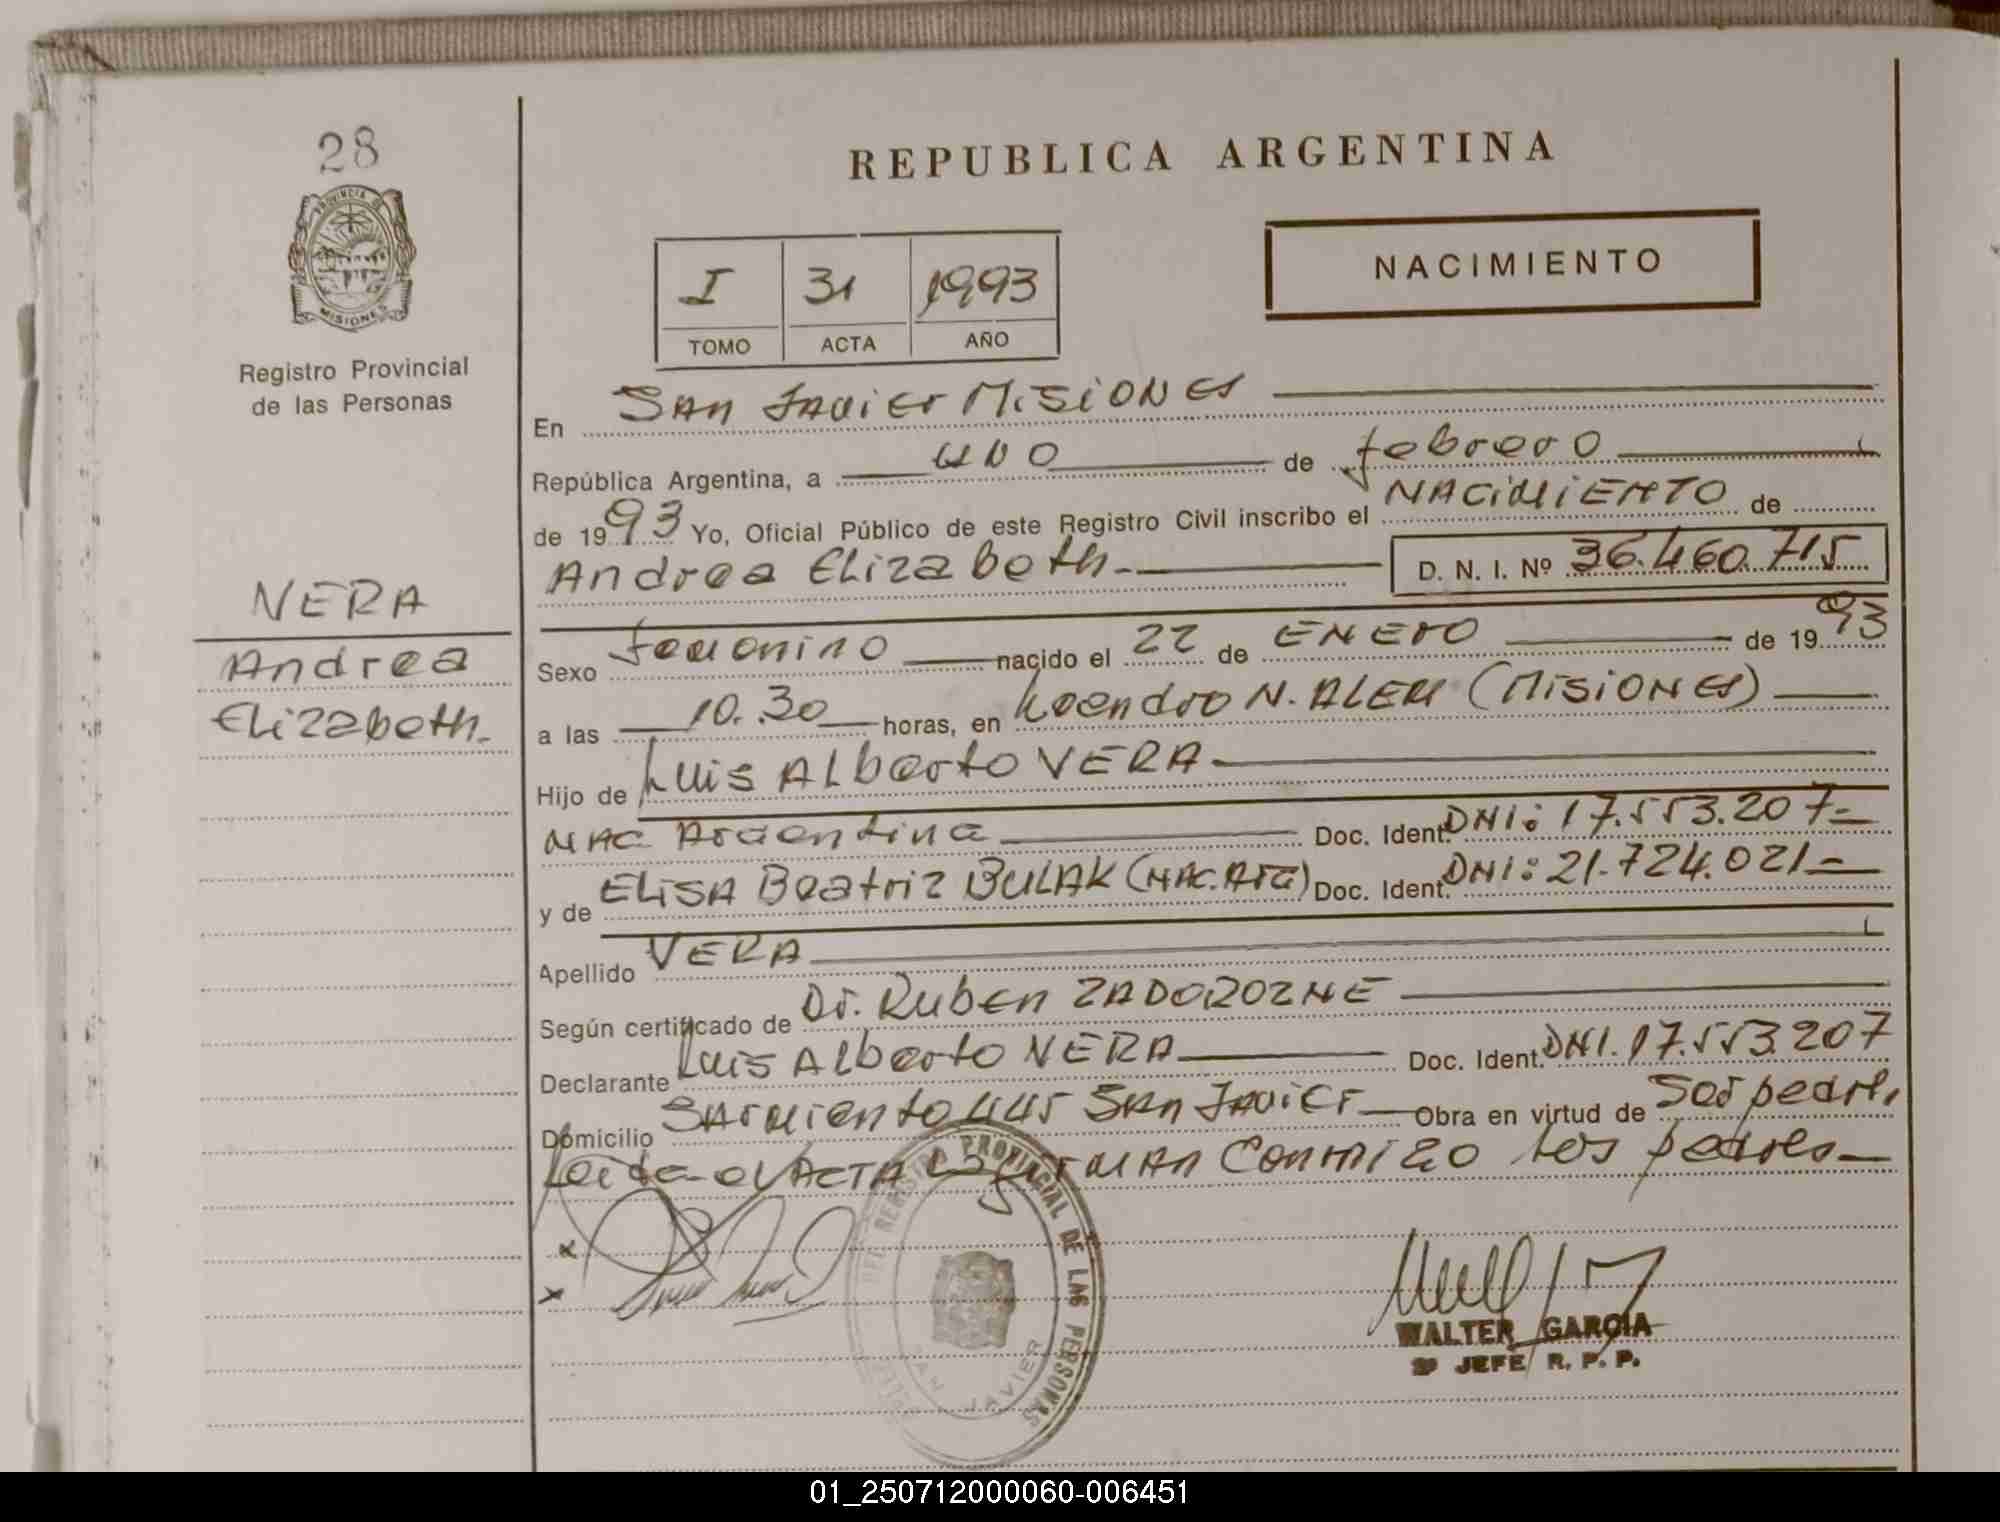 28
PROVINCIA DE
MISIONES
Registro Provincial
de las Personas
VERA
Andrea
Elizabeth.
REPUBLICA ARGENTINA
I 31 1993
TOMO ACTA AÑO
NACIMIENTO
En San Javier Misiones
República Argentina, a uno de febrero
de 1993 Yo, Oficial Público de este Registro Civil inscribo el NACIMIENTO de
Andrea Elizabeth.
D. N. I. Nº 36.460.715
Sexo femenino nacido el 22 de ENERO de 1993
a las 10.30 horas, en Leandro N. ALEM (Misiones)
Hijo de Luis Alberto VERA
NAC Argentina Doc. Ident. DNI: 17.553.207=
y de ELISA Beatriz BULAK (NAC. Arg) Doc. Ident. DNI: 21.724.021=
Apellido VERA
Según certificado de Dr. Ruben ZADOROZNE
Declarante Luis Alberto VERA Doc. Ident. DNI. 17.553.207
Domicilio Sarmiento 445 San Javier Obra en virtud de
Leida el ACTA la firman conmigo los padres
DEL REGISTRO PROVINCIAL DE LAS PERSONAS
SAN JAVIER
x
x
WALTER GARCIA
2º JEFE R. P. P.
01_250712000060-006451